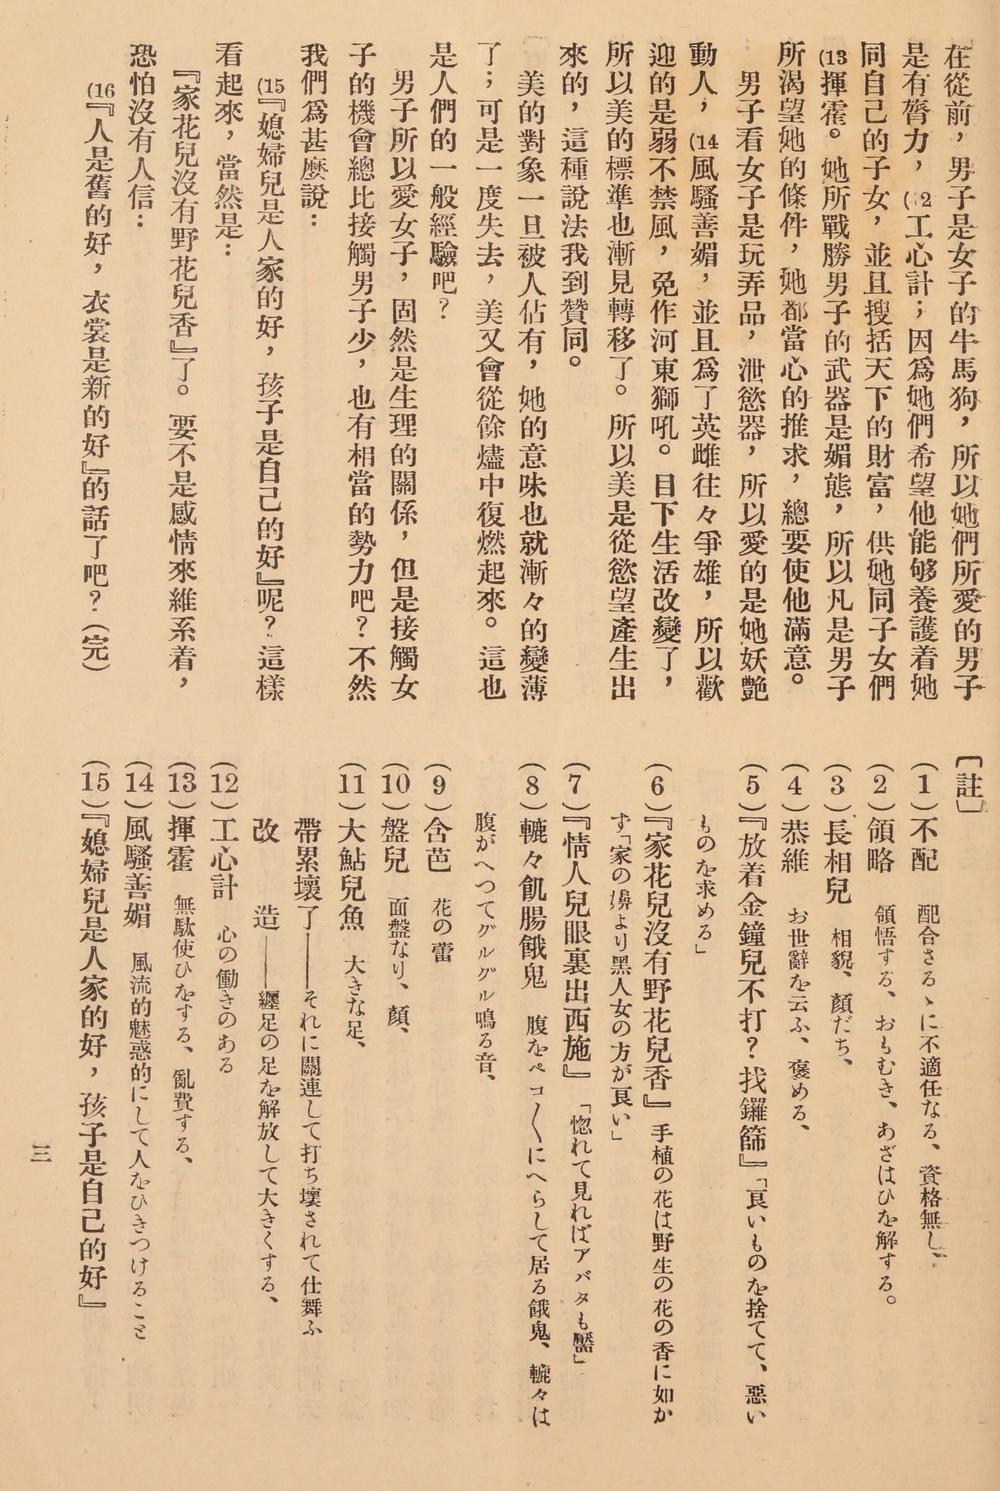 在從前，男子是女子的牛馬狗，所以她們所愛的男子
是有膂力，(12工心計；因爲她們希望他能够養護着她
同自己的子女，並且搜括天下的財富，供她同子女們
(13揮霍。她所戰勝男子的武器是媚態，所以凡是男子
所渴望她的條件，她都當心的推求，總要使他滿意。
男子看女子是玩弄品，泄慾器，所以愛的是她妖艷
動人，(14風騷善媚，並且爲了英雌往々爭雄，所以歡
迎的是弱不禁風，免作河東獅吼。目下生活改變了，
所以美的標準也漸見轉移了。所以美是從慾望產生出
來的，這種說法我到贊同。
美的對象一旦被人佔有，她的意味也就漸々的變薄
了；可是一度失去，美又會從餘燼中復燃起來。這也
是人們的一般經驗吧？
男子所以愛女子，固然是生理的關係，但是接觸女
子的機會總比接觸男子少，也有相當的勢力吧？不然
我們爲甚麽說：
(15『媳婦兒是人家的好，孩子是自己的好』呢？這樣
看起來，當然是：
『家花兒沒有野花兒香』了。要不是感情來維系着，
恐怕沒有人信：
(16『人是舊的好，衣裳是新的好』的話了吧？（完）
〔註〕
（1）不配　配合さるゝに不適任なる、資格無し、
（2）領略　領悟する、おもむき、あぢはひを解する。
（3）長相兒　相貌、顏だち、
（4）恭維　お世辭を云ふ、褒める、
（5）『放着金鐘兒不打？找鑼篩』「良いものを捨てて、惡い
ものを求める」
（6）『家花兒沒有野花兒香』手植の花は野生の花の香に如か
ず「家の嬶より黑人女の方が良い」
（7）『情人兒眼裏出西施』「惚れて見ればアバタも靨」
（8）轆々飢腸餓鬼　腹をペコ〱にへらして居る餓鬼、轆々は
腹がへつてグルグル鳴る音、
（9）含芭　花の蕾
（10）盤兒　面盤なり、顏、
（11）大鮎兒魚　大きな足、
帶累壞了――それに關連して打ち壞されて仕舞ふ
改　造――纏足の足を解放して大きくする、
（12）工心計　心の働きのある
（13）揮霍　無駄使ひをする、亂費する、
（14）風騷善媚　風流的魅惑的にして人をひきつけること
（15）『媳婦兒是人家的好，孩子是自己的好』
三